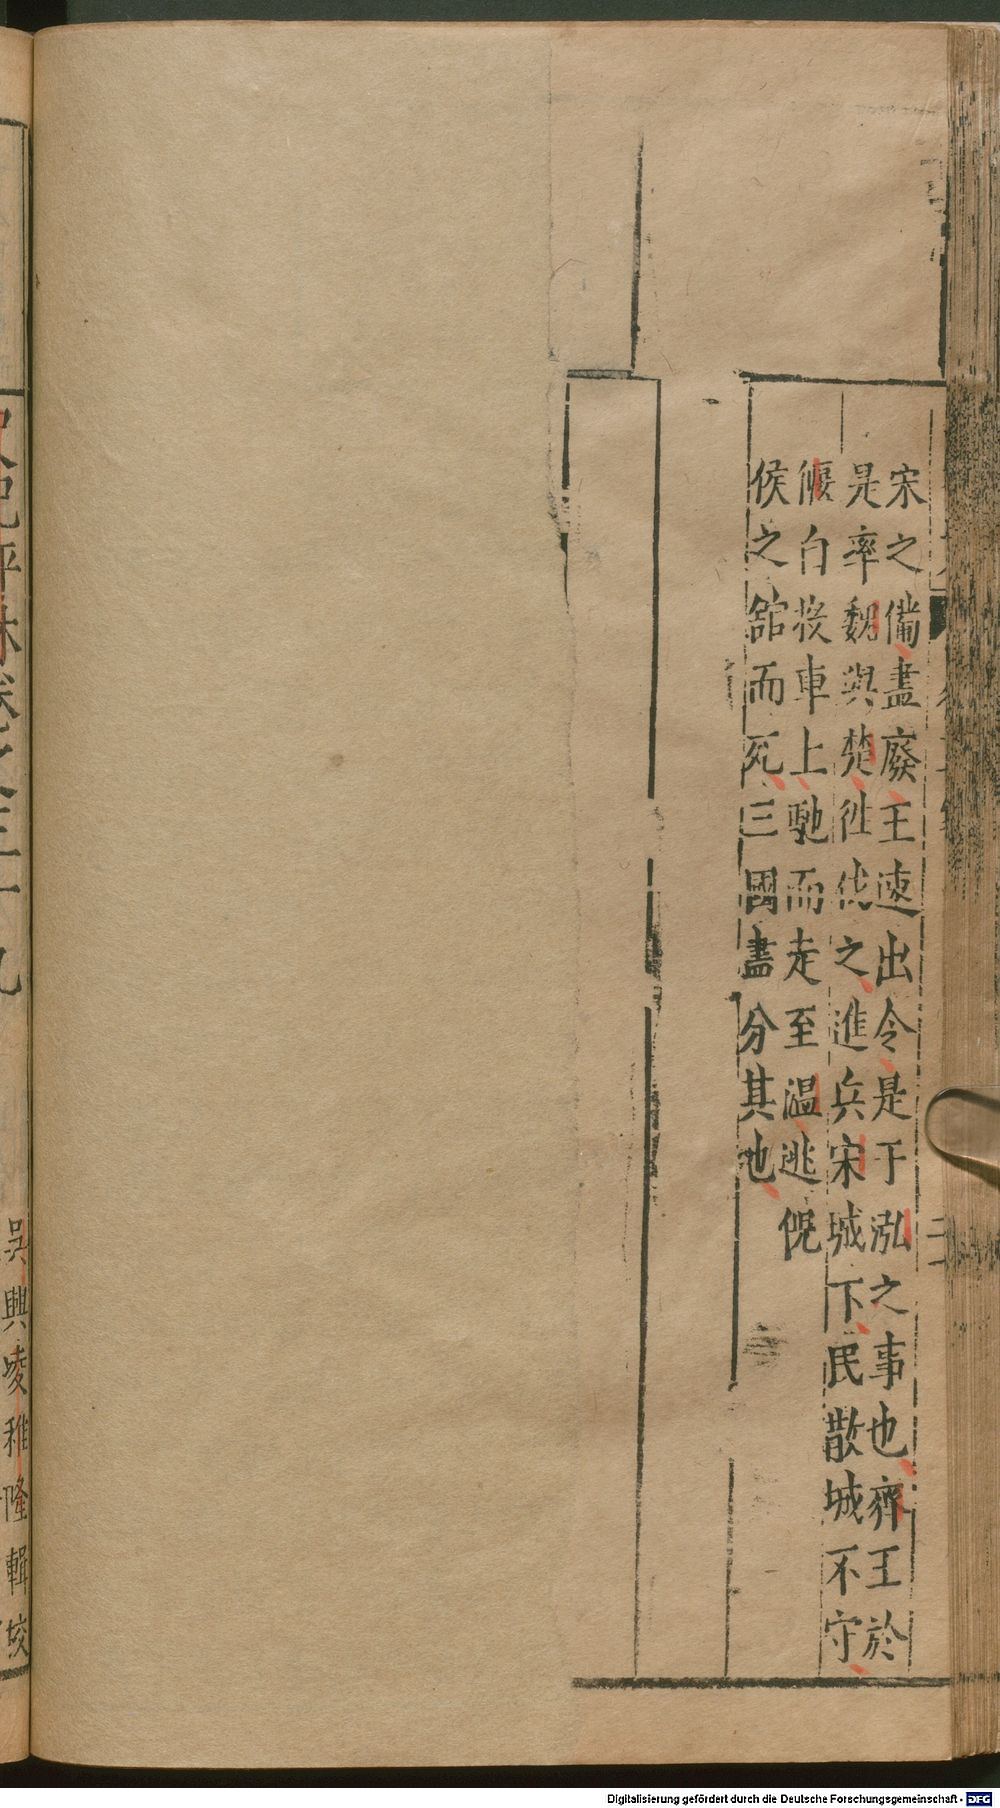 宋之備盡廢王速出令是于泓之事也齊王於
是率魏與楚徃伐之進兵宋城下民散城不守
偃自投車上馳而走至溫逃倪
侯之舘而死三國盡分其也
史記評林卷之三十九
吳興凌稚隆輯校
Digitalisierung gefördert durch die Deutsche Forschungsgemeinschaft - DFG